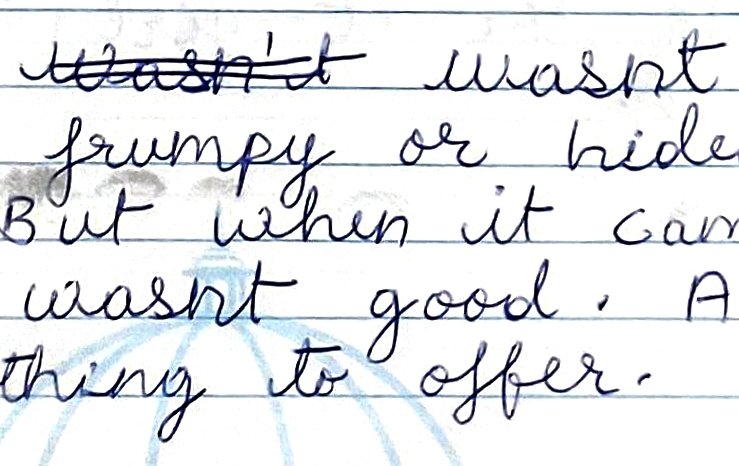 wasn't wasnt
frumpy or hide
But when it cam
wasnt good. A
thing to offer.